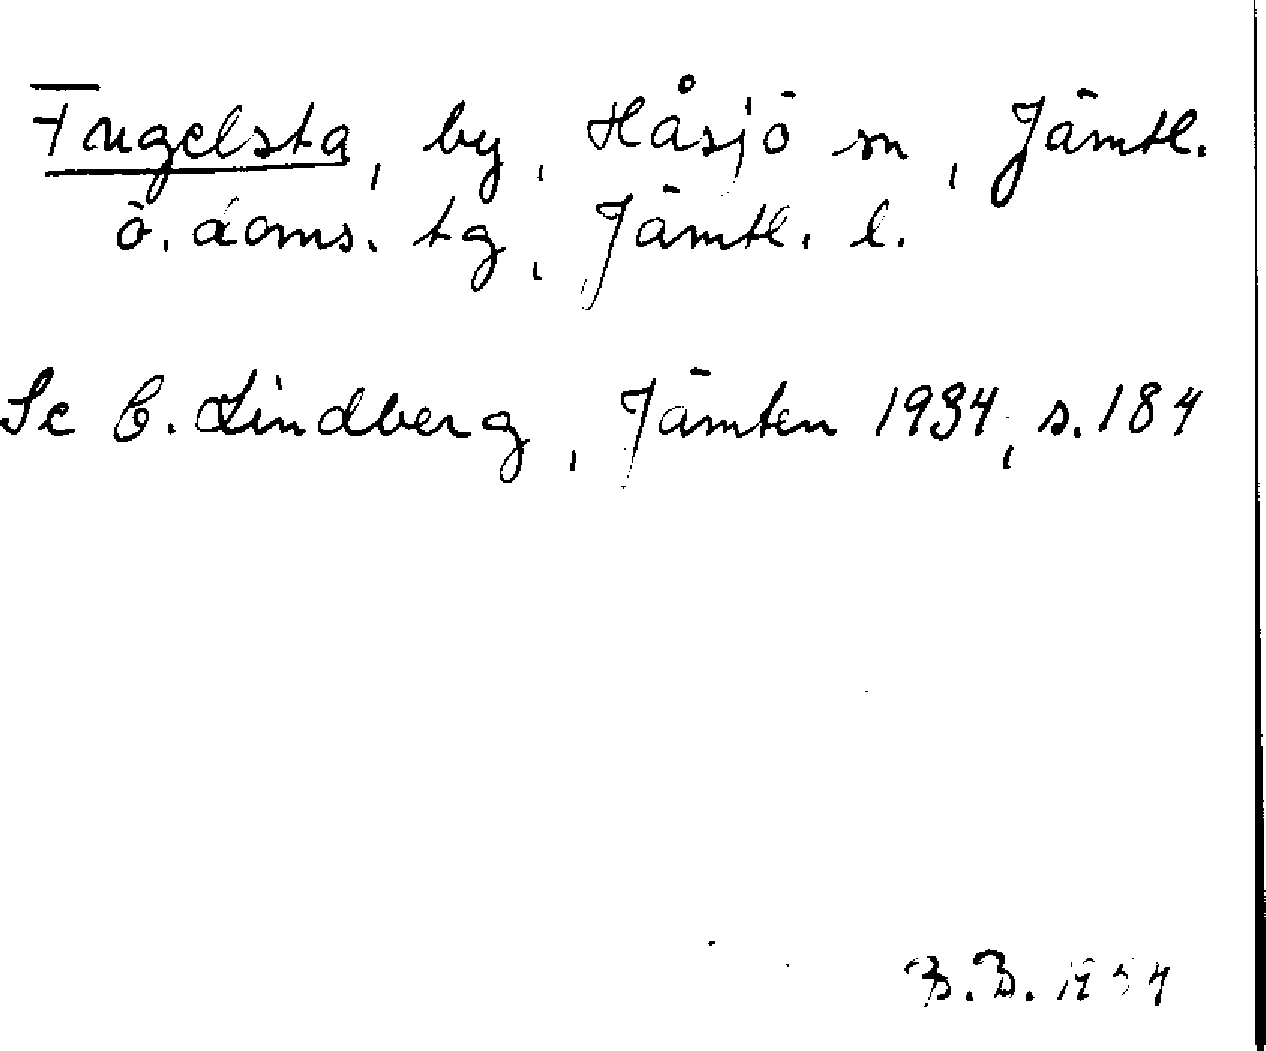 Fugelsta, by, Håsjö sn, Jämtl.
ö. doms. tg, Jämtl. l.
Se C. Lindberg, Jämten 1934, s. 184
B.B. 1934